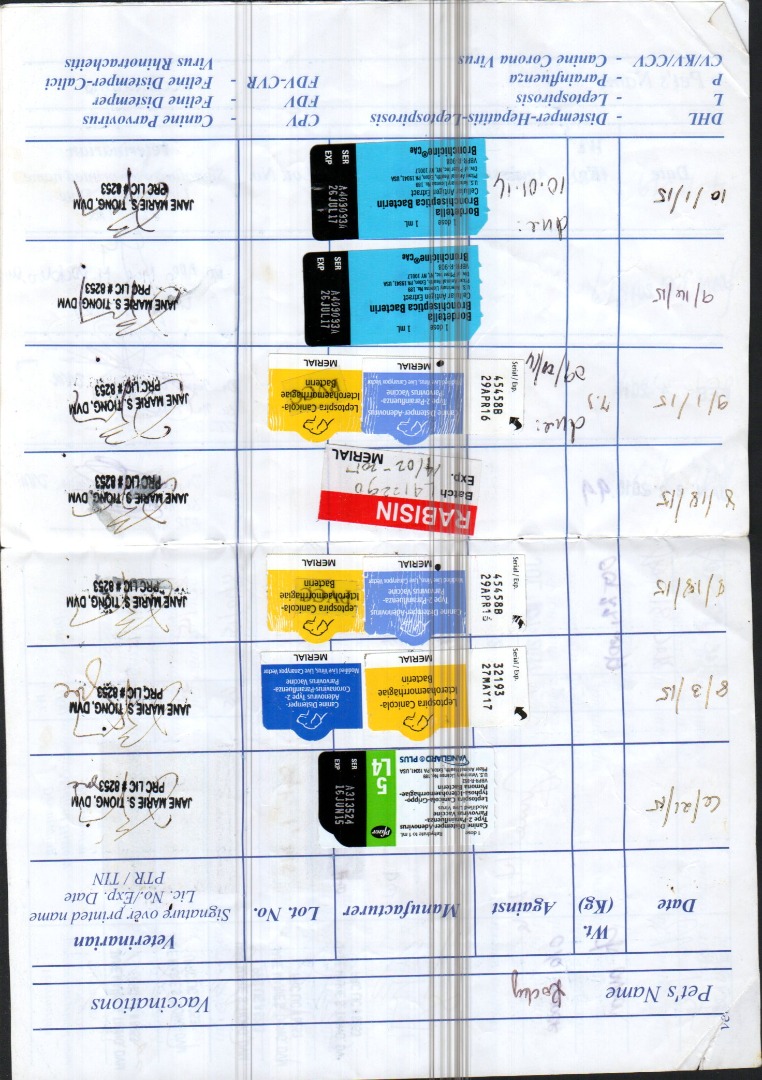 Pet's Name Rocky Vaccinations
Date Wt. (Kg) Against Manufacturer Lot. No. Veterinarian
Signature over printed name
Lic. No./Exp. Date
PTR / TIN
6/21/15
1 dose Rehydrate to 1 mL
Canine Distemper-Adenovirus
Type 2-Parainfluenza-
Parvovirus Vaccine
Modified Live Virus
Leptospira Canicola-Grippo-
typhosa-Icterohaemorrhagiae-
Pomona Bacterin
VANGUARD® PLUS
5
L4
Pfizer
SER A313524
EXP 16JUN15
JANE MARIE S. TIONG, DVM
PRC LIC # 8253
8/3/15
Serial / Exp.
32193
27MAY17
Leptospira Canicola-
Icterohaemorrhagiae
Bacterin
MERIAL
Canine Distemper-
Adenovirus Type 2-
Coronavirus-Parainfluenza-
Parvovirus Vaccine
Modified Live Virus, Live Canarypox Vector
MERIAL
JANE MARIE S. TIONG, DVM
PRC LIC # 8253
8/18/15
Serial / Exp.
45458B
29APR16
Canine Distemper-Adenovirus
Type 2-Parainfluenza-
Parvovirus Vaccine
Modified Live Virus, Live Canarypox Vector
MERIAL
Leptospira Canicola-
Icterohaemorrhagiae
Bacterin
MERIAL
JANE MARIE S. TIONG, DVM
PRC LIC # 8253
8/18/15
RABISIN
Batch L412290
Exp. 14/02-2017
MERIAL
JANE MARIE S. TIONG, DVM
PRC LIC # 8253
9/1/15 7.5 due:
Serial / Exp.
45458B
29APR16
Canine Distemper-Adenovirus
Type 2-Parainfluenza-
Parvovirus Vaccine
Modified Live Virus, Live Canarypox Vector
MERIAL
Leptospira Canicola-
Icterohaemorrhagiae
Bacterin
MERIAL
JANE MARIE S. TIONG, DVM
PRC LIC # 8253
9/16/15
1 dose 1 mL
Bordetella
Bronchiseptica Bacterin
Cellular Antigen Extract
Bronchicine®CAe
SER A409093A
EXP 26JUL17
JANE MARIE S. TIONG, DVM
PRC LIC # 8253
10/1/15 due: 10.01.16
1 dose 1 mL
Bordetella
Bronchiseptica Bacterin
Cellular Antigen Extract
Bronchicine®CAe
SER A409093A
EXP 26JUL17
JANE MARIE S. TIONG, DVM
PRC LIC # 8253
DHL - Distemper-Hepatitis-Leptospirosis CPV - Canine Parvovirus
L - Leptospirosis FDV - Feline Distemper
P - Parainfluenza FDV-CVR - Feline Distemper-Calici
CV/KV/CCV - Canine Corona Virus Virus Rhinotracheitis